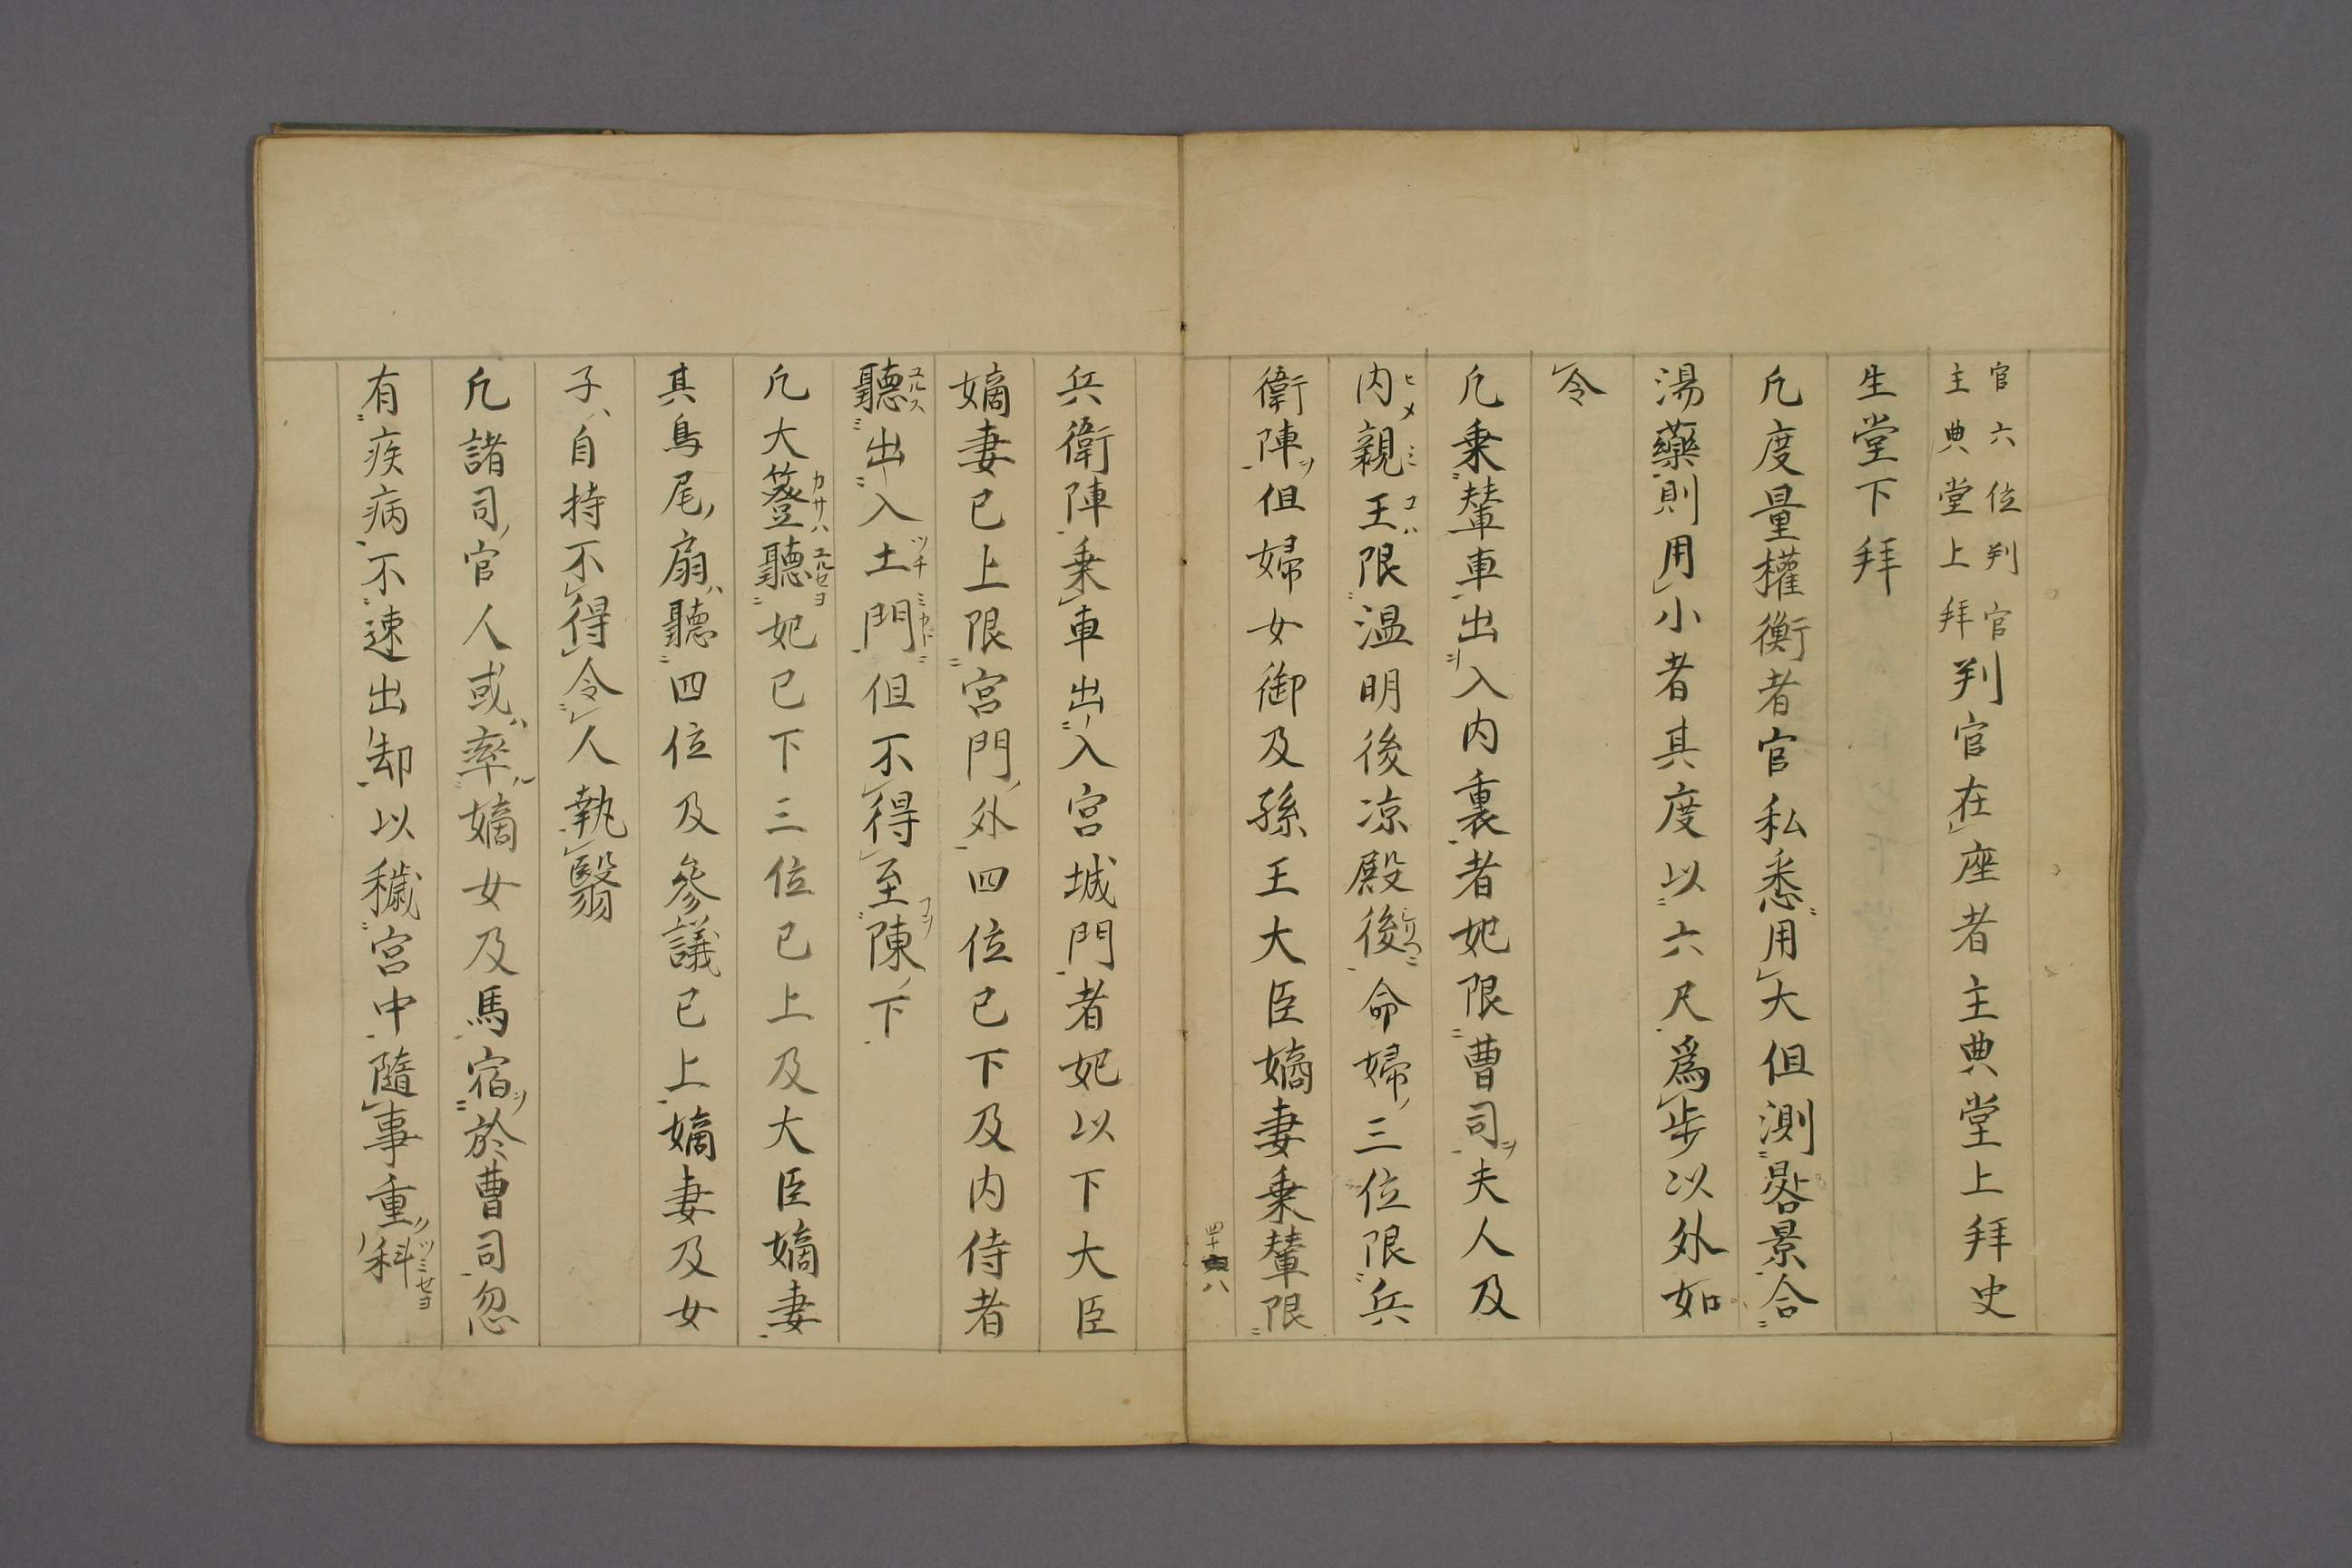 官六位判官
主典堂上拜
判官在座者主典堂上拜史
生堂下拜
凡度量權衡者官私悉用大但測晷景合
湯藥則用小者其度以六尺爲步以外如
令
凡乗輦車出入内裏者妃限曹司夫人及
内親王限温明後凉殿後命婦三位限兵
衛陣但婦女御及孫王大臣嫡妻乗輦限
四十八
兵衛陣乗車出入宮城門者妃以下大臣
嫡妻已上限宮門外四位已下及内侍者
聽出入土門但不得至陳下
凡大簦聽妃已下三位已上及大臣嫡妻
其鳥尾扇聽四位及參議已上嫡妻及女
子自持不得令人執翳
凡諸司官人或率嫡女及馬宿於曹司忽
有疾病不速出却以穢宮中隨事重科